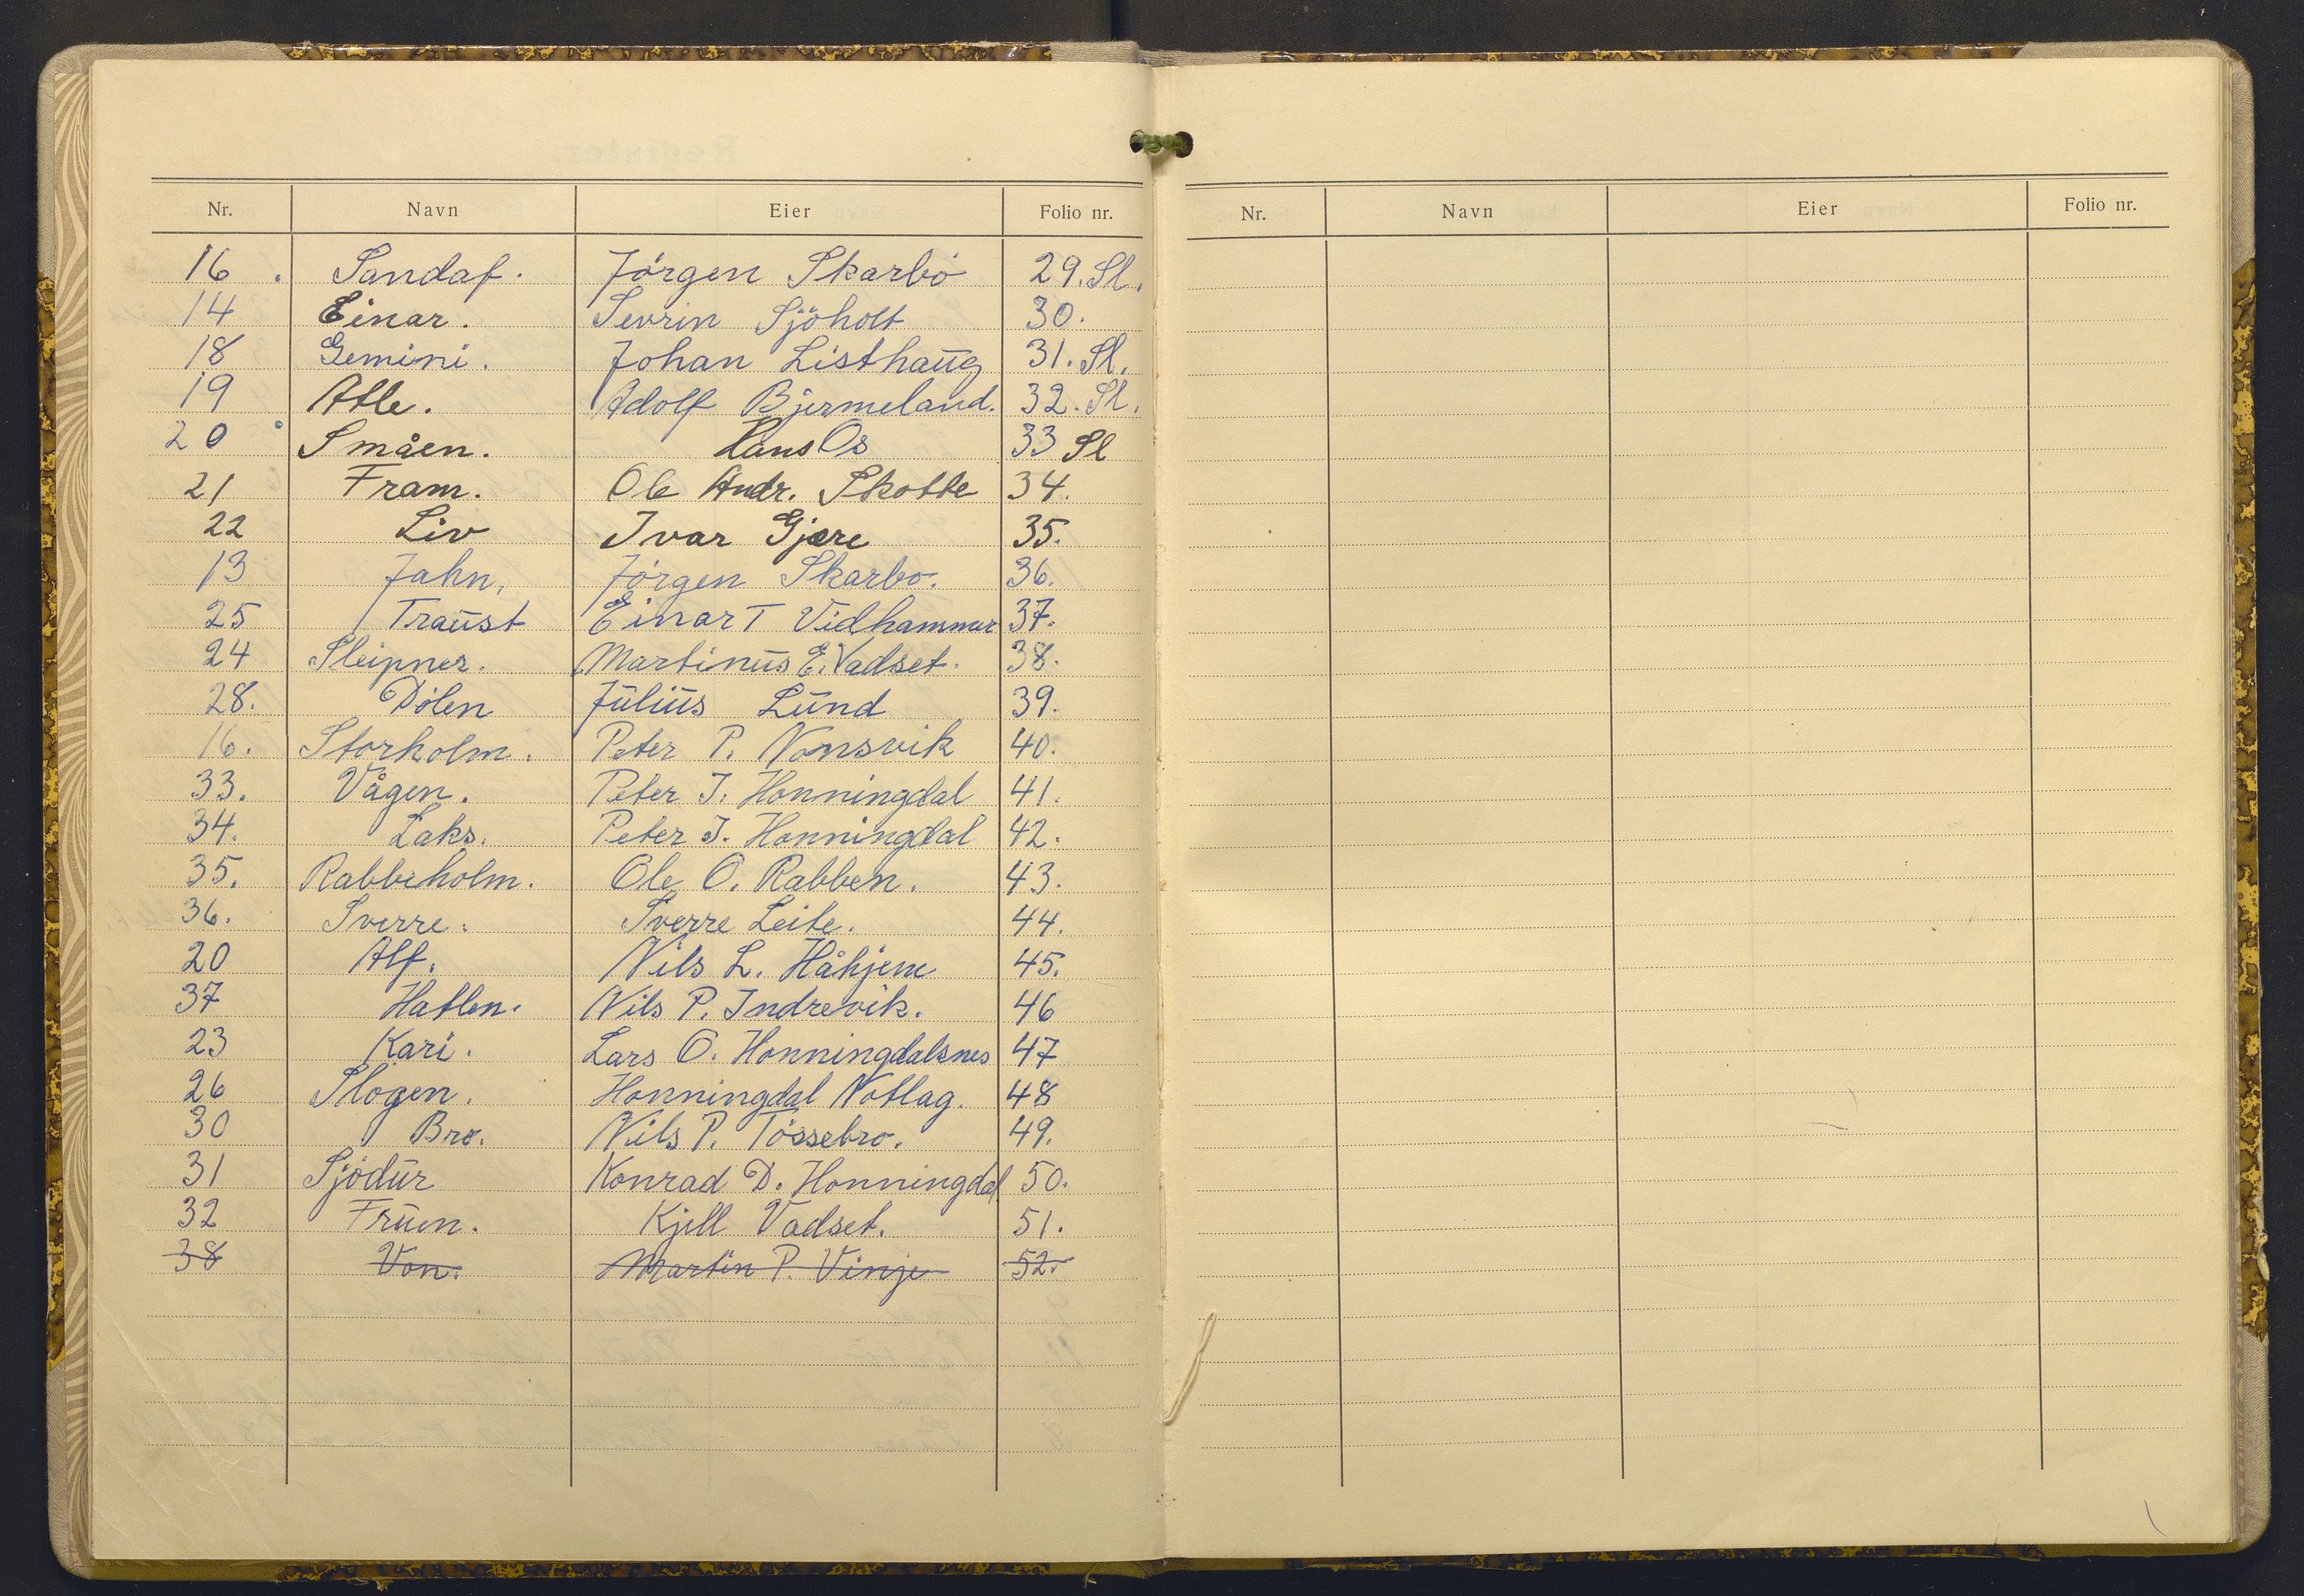 Nr. Navn Eier Folio nr.
16. Sandaf. Jörgen Skarbö 29. Sl.
14 Einar. Sevrin Sjöholt 30.
18 Gemini. Johan Listhaug 31. Sl.
19 Atle. Adolf Bjermeland. 32. Sl.
20 Småen. Hans Os 33 Sl
21 Fram. Ole Andr. Skotte 34.
22 Liv Ivar Gjære 35.
13 Jahn. Jörgen Skarbo. 36.
25 Traust Einar T Vidhammer 37.
24 Sleipner. Martinus E. Vadset. 38.
28. Dölen Julius Lund 39.
16. Storholm. Peter P. Vonsvik 40.
33. Vågen. Peter I. Honningdal 41.
34. Laks. Peter I. Honningdal 42.
35. Rabbeholm. Ole O. Rabben. 43.
36. Sverre. Sverre Leite. 44.
20 Alf. Nils L. Håhjem 45.
37 Hatlen. Nils P. Indrevik. 46
23 Kari. Lars O. Honningdalsnes 47
26 Slogen. Honningdal Notlag. 48
30 Bro. Nils P. Tössebro. 49.
31 Sjödur Konrad D. Honningdal 50.
32 Fruen. Kjell Vadset. 51.
38 Von. Martin P. Vinje 52.
Nr. Navn Eier Folio nr.